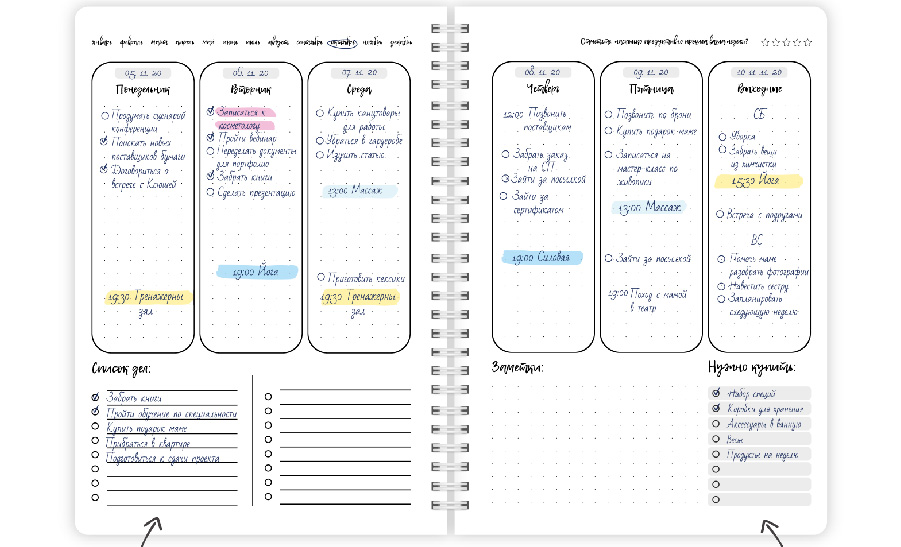 январь февраль март апрель май июнь июль август сентябрь октябрь ноябрь декабрь
05 11 20
Понедельник
Продумать сценарий
конференции
Поискать новых
поставщиков бумаги
Договориться о
встрече с Ксюшей
19:30 Тренажерный
зал
06 11 20
Вторник
Записаться к
косметологу
Пройти вебинар
Переделать документы
для портфолио
Забрать книги
Сделать презентацию
19:00 Йога
07 11 20
Среда
Купить канцтовары
для работы
Изучить статью
13:00 Массаж
Приготовить
19:30 Тренажерный
зал
Список дел:
Забрать книги
Пройти обучение по специальности
Купить подарок маме
Прибраться в квартире
Подготовиться к сдачи проекта
08 11 20
Четверг
12:00 Позвонить
поставщикам
Забрать заказ
на
Зайти за посылкой
Зайти за
сертификатом
19:00 Силовая
09 11 20
Пятница
Позвонить по брони
Купить подарок маме
Записаться на
мастер-класс по
живописи
13:00 Массаж
Зайти за посылкой
19:00 Поход с мамой
в театр
10 11 20
Выходные
СБ
Уборка
Забрать вещи
из химчистки
15:30 Йога
Встреча с подругами
ВС
Помочь маме
разобрать фотографии
Навестить сестру
Запланировать
следующую неделю
Заметки:
Нужно купить:
Набор специй
Коробки для хранения
Аксессуары в ванную
Вазы
Продукты на неделю